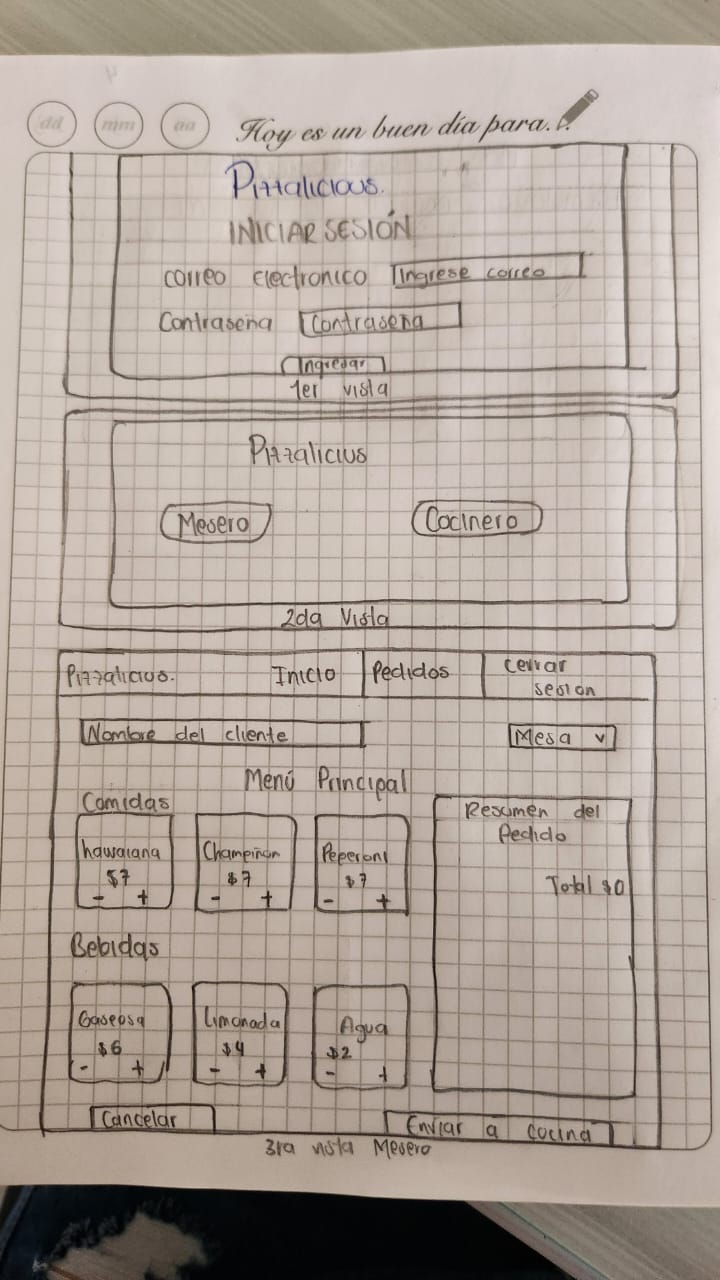 dd mm aa Hoy es un buen día para...
Pizzalicious.
INICIAR SESIÓN
correo electronico Ingrese correo
Contraseña Contraseña
Ingresar
1er vista
Pizzalicius
Mesero Cocinero
2da Vista
Pizzalicius. Inicio Pedidos cerrar sesion
Nombre del cliente Mesa v
Menú Principal
Comidas
hawaiana Champiñon Peperoni
$7 $7 $7
- + - + - +
Resumen del
Pedido
Total $0
Bebidas
Gaseosa Limonada Agua
$6 $4 $2
- + - + - +
Cancelar Enviar a cocina
3ra vista Mesero